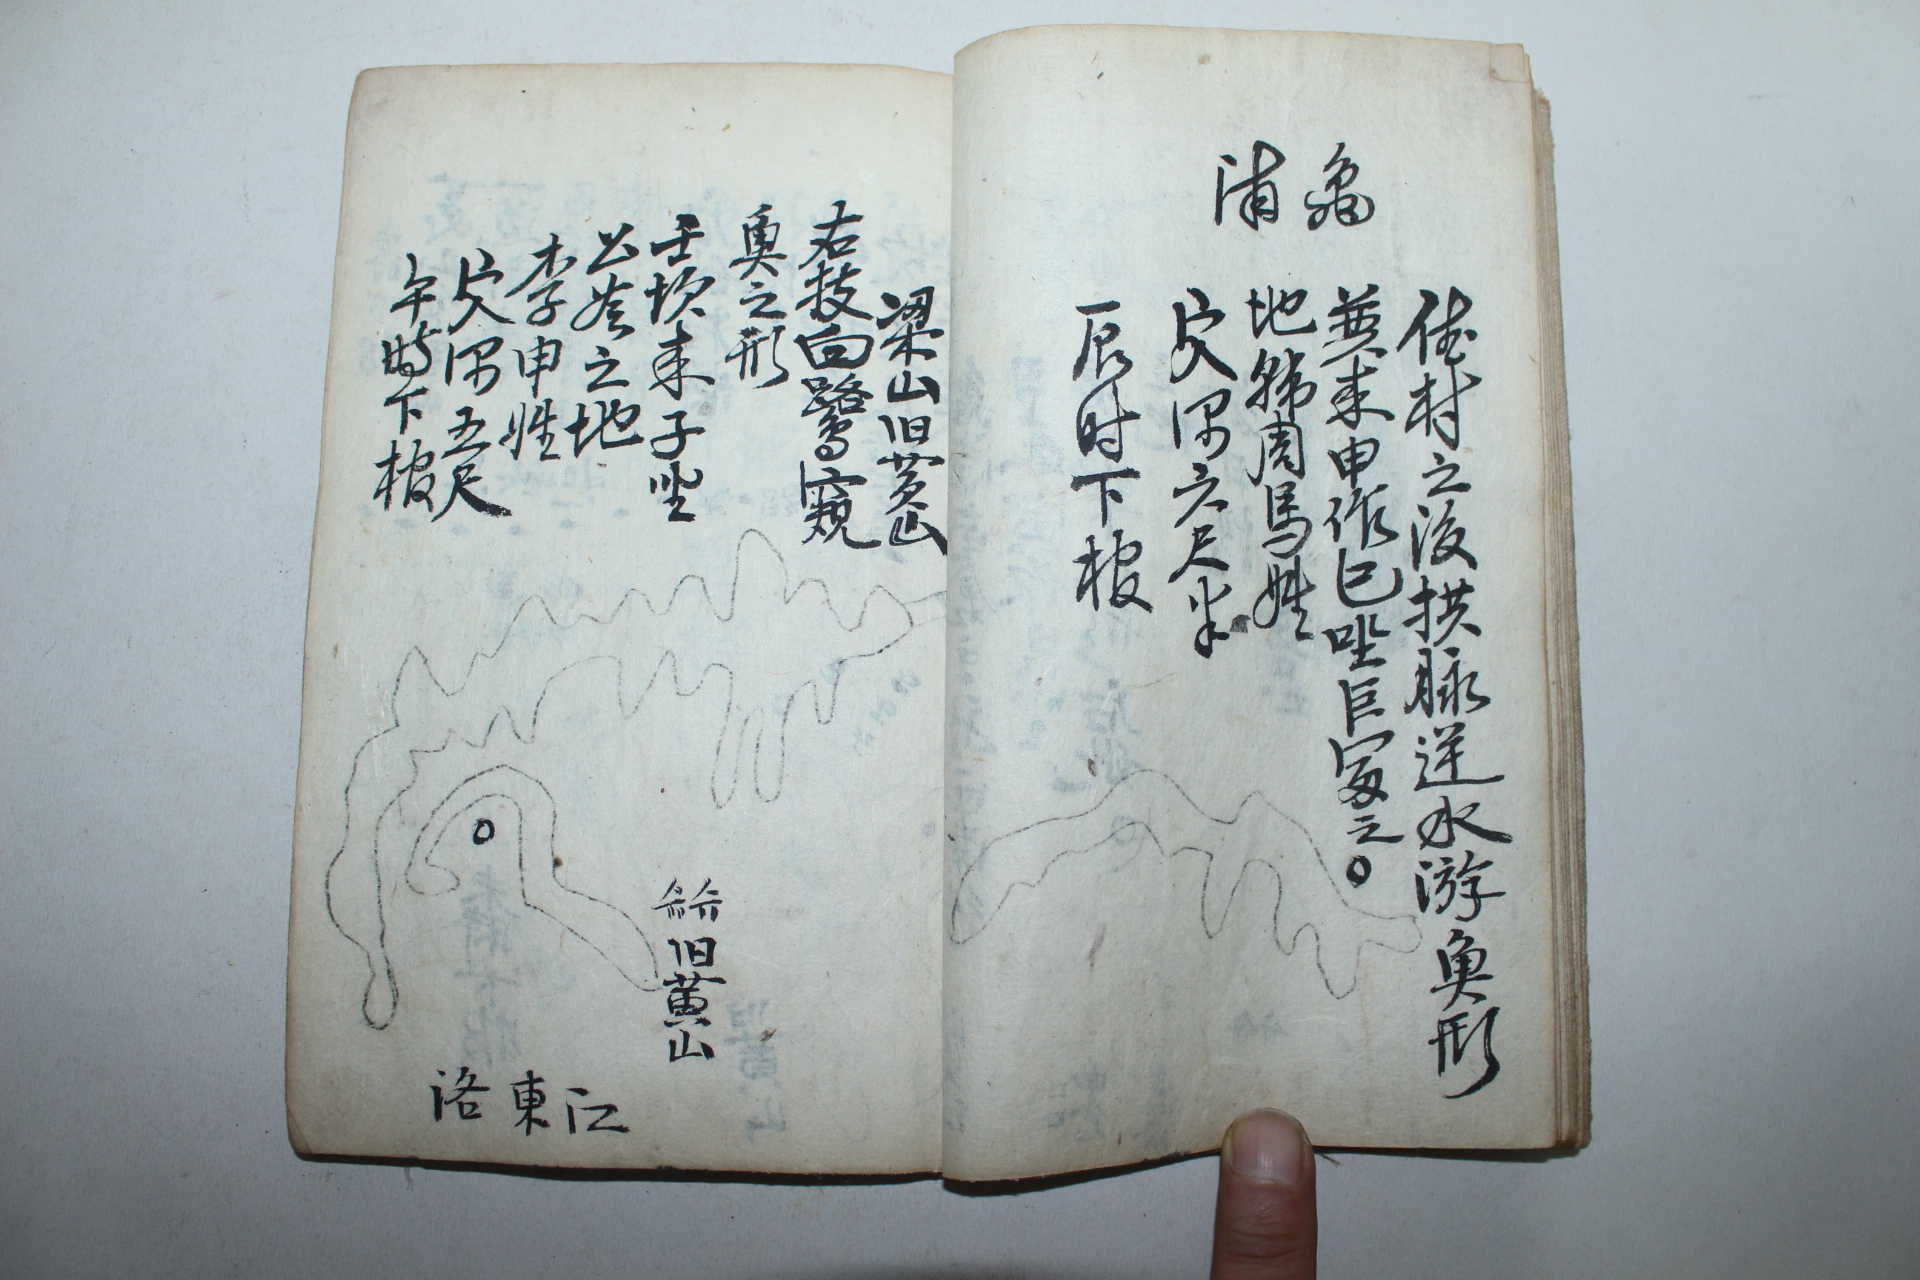 龜浦
村之後拱脉逆水游魚形
來申作巳坐巨冨之○
地 周馬姓
穴深六尺半
辰时下棺
梁山旧黄山
右枝白鷺窺
魚之形
壬坎来子坐
公葬之地
李申姓
穴深五尺
午時下棺
旧黄山
洛東江